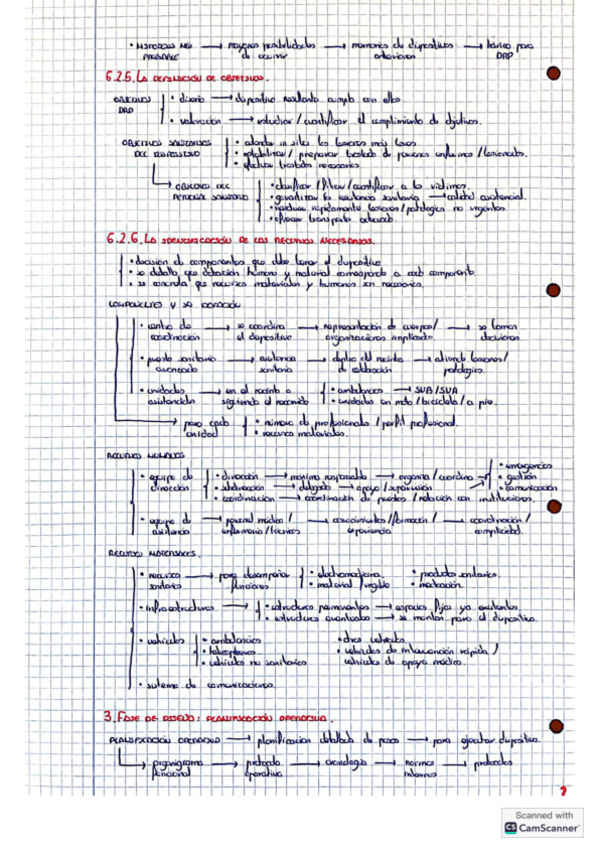 • HISTÓRICO MÁS PROBABLE → mayores posibilidades de ocurrir → memorias de dispositivos anteriores → básico para DRP
6.2.5. LA DEFINICIÓN DE OBJETIVOS.
OBJETIVOS DRP
• diseño → dispositivo resultante cumpla con ello
• valoración → estudiar / cuantificar el cumplimiento de objetivos.
OBJETIVOS SANITARIOS DEL DISPOSITIVO
• atender in situ las lesiones más leves
• estabilizar / preparar traslado de pacientes enfermos / lesionados.
• efectuar traslados necesarios.
OBJETIVO DEL PERSONAL SANITARIO
• clasificar / filiar / cuantificar a las víctimas.
• garantizar su asistencia sanitaria → calidad asistencial.
• evacuar rápidamente lesiones / patologías no urgentes
• eficaz transporte adecuado.
6.2.6. LA IDENTIFICACIÓN DE LOS RECURSOS NECESARIOS.
• decisión de componentes que debe tener el dispositivo
• se detalla que dotación humana y material corresponde a cada componente.
• se concreta que recursos materiales y humanos son necesarios.
COMPONENTES Y SU DOTACIÓN
• centro de coordinación → se coordina el dispositivo → representación de cuerpos / organizaciones implicadas → se toman decisiones
• puesto sanitario avanzado → asistencia sanitaria → dentro del recinto de celebración → atiende lesiones / patologías.
• unidades asistenciales → en el recinto o siguiendo el recorrido
• ambulancias → SVB / SVA
• unidades en moto / bicicleta / a pie.
para cada unidad
• número de profesionales / perfil profesional.
• recursos materiales.
RECURSOS HUMANOS
• equipo de dirección
• dirección → máximo responsable → organiza / coordina
• emergencias
• gestión
• comunicación
• subdirección → delegado → apoyo / supervisión
• coordinación → coordinación de puestos / relación con instituciones.
• equipo de asistencia → personal médico / enfermería / técnicos → conocimientos / formación / experiencia → coordinación / complicidad.
RECURSOS MATERIALES.
• recursos sanitarios → para desempeñar funciones
• electromedicina • productos sanitarios.
• material fungible • medicación.
• infraestructuras →
• estructuras permanentes → espacios fijos ya existentes
• estructuras eventuales → se montan para el dispositivo.
• vehículos
• ambulancias • otros vehículos
• helicópteros • vehículos de intervención rápida /
• vehículos no sanitarios vehículos de apoyo médico.
• sistema de comunicaciones.
3. FASE DE DISEÑO: PLANIFICACIÓN OPERATIVA.
PLANIFICACIÓN OPERATIVA → planificación detallada de pasos → para ejecutar dispositivo.
organigrama funcional → protocolo operativo → cronología → normas internas → protocolos
2
Scanned with
CS CamScanner